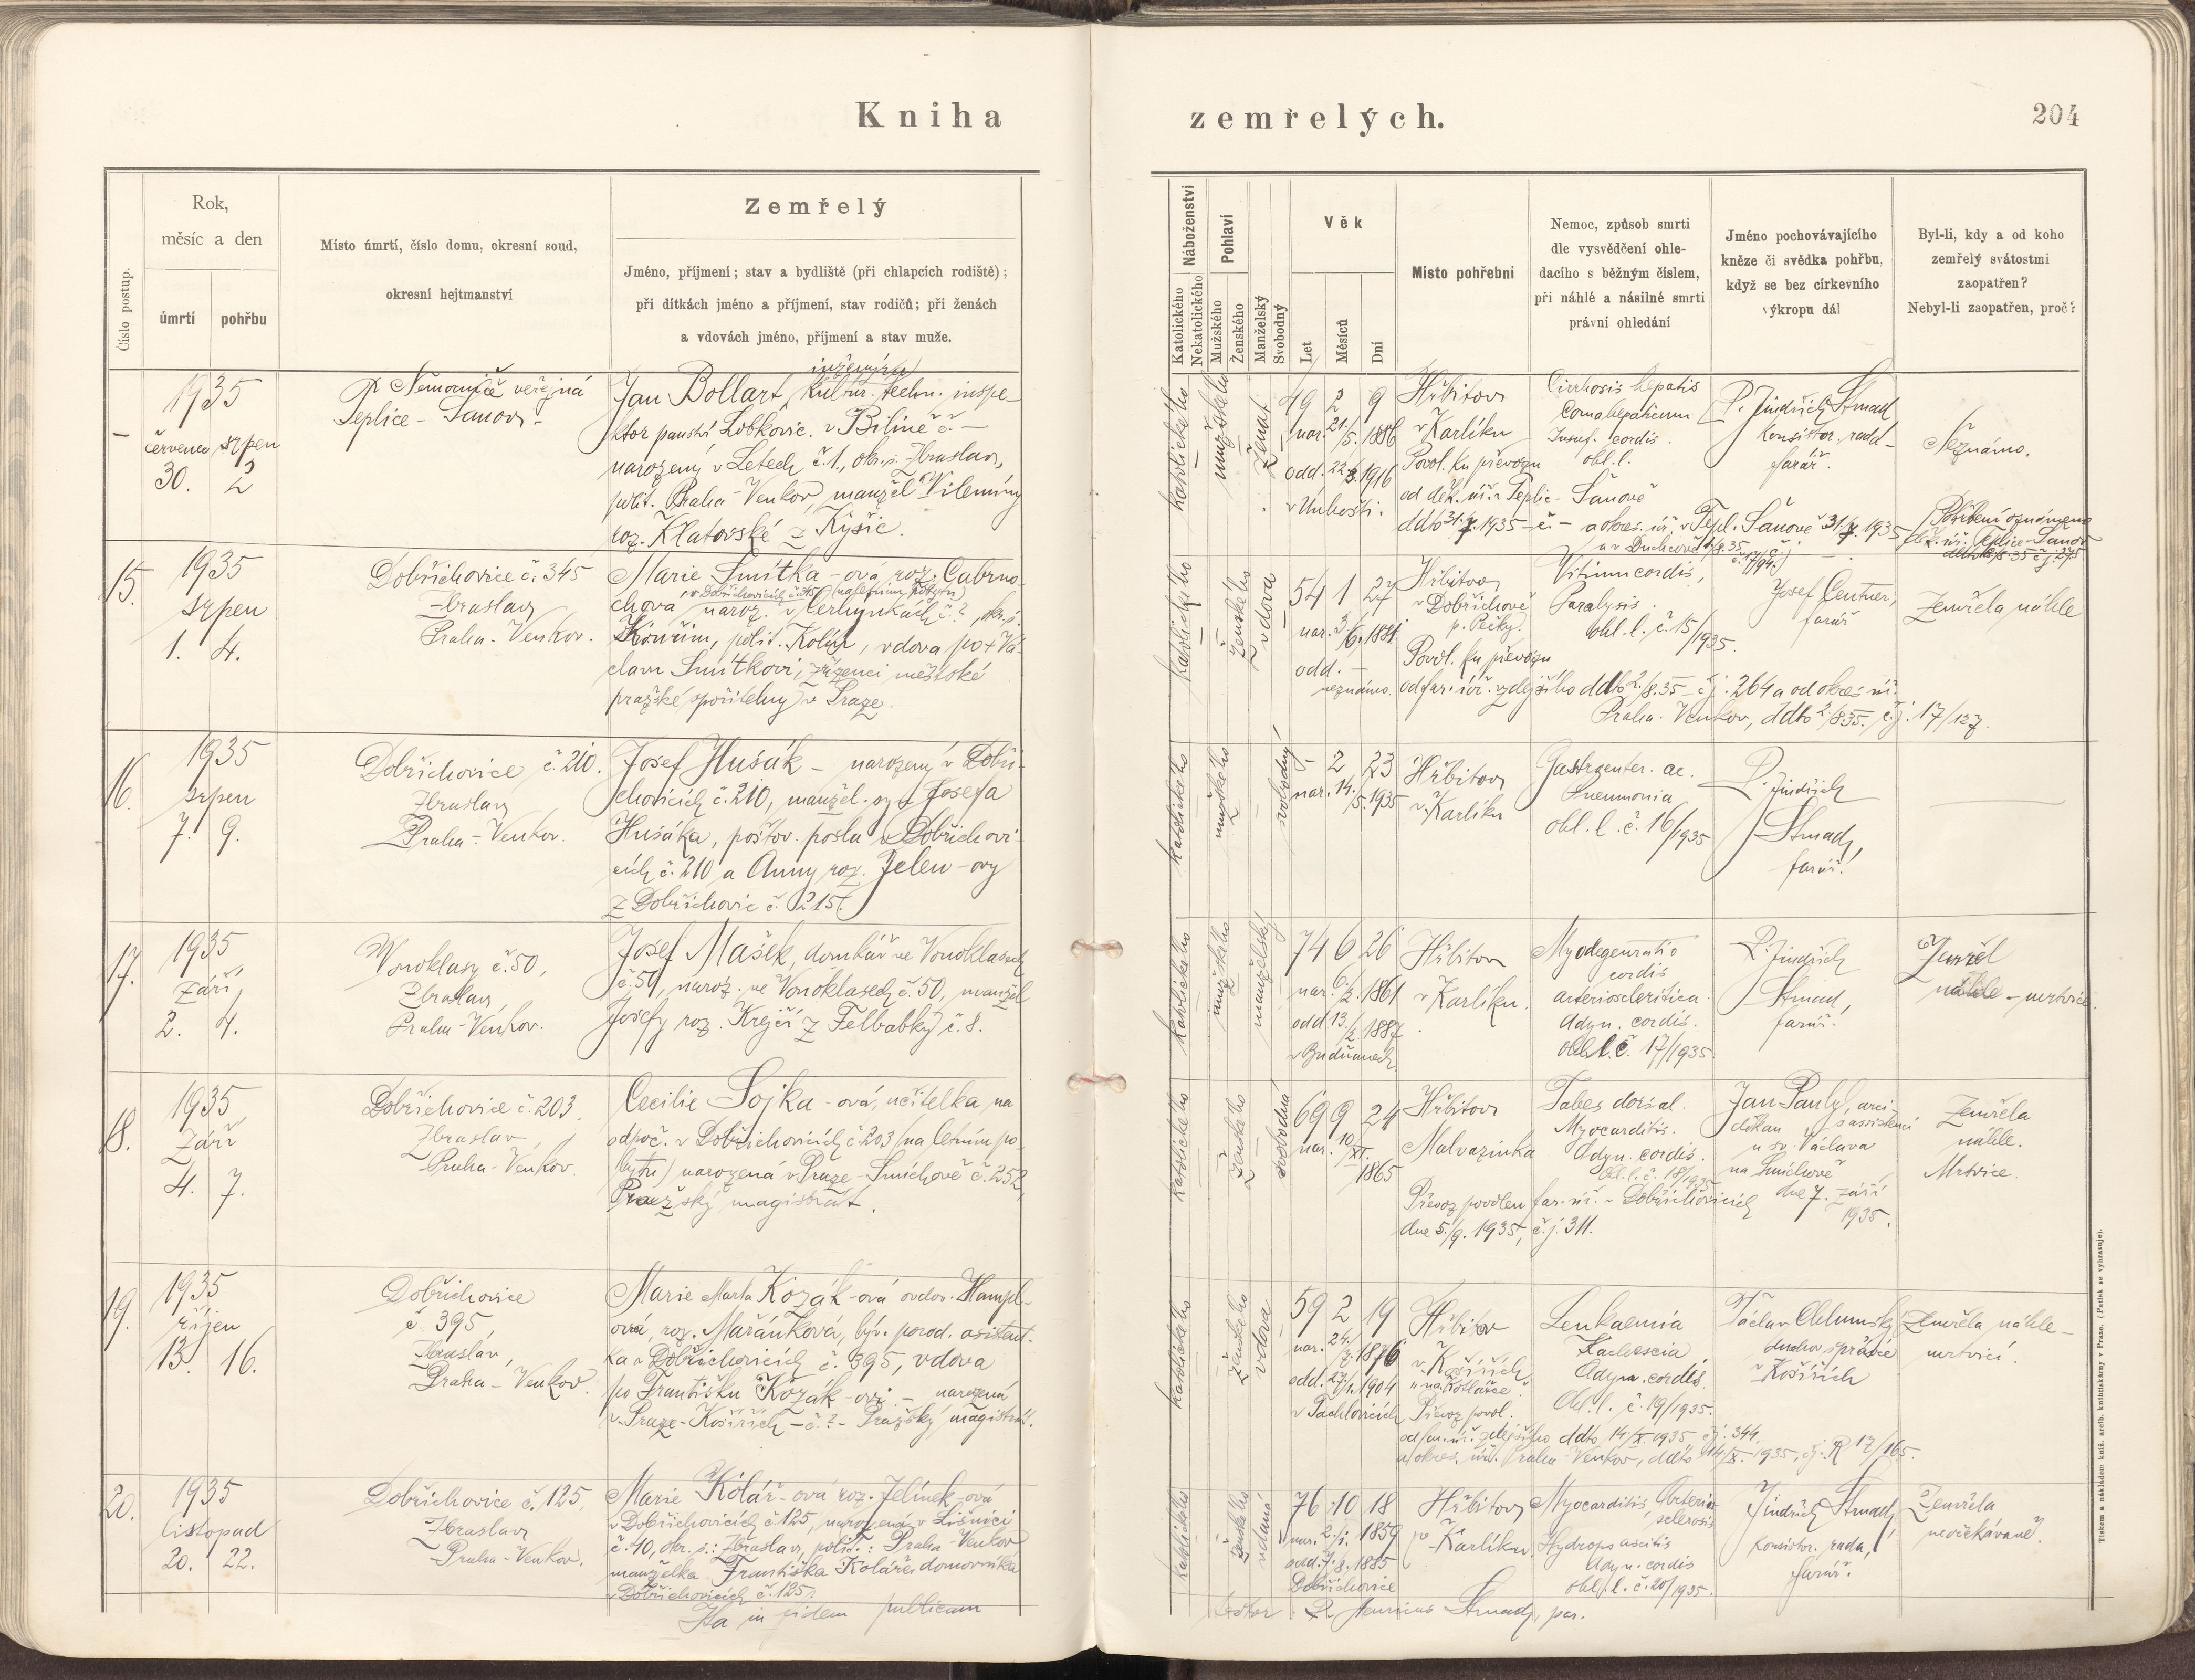 Kniha
zemřelých.
204
Číslo postup.
Rok,
měsíc a den
úmrtí
pohřbu
Místo úmrtí, číslo domu, okresní soud,
okresní hejtmanství
Zemřelý
Jméno, příjmení; stav a bydliště (při chlapcích rodiště);
při dítkách jméno a příjmení, stav rodičů; při ženách
a vdovách jméno, příjmení a stav muže.
Náboženství
Katolického
Nekatolického
Pohlaví
Mužského
Ženského
Manželský
Svobodný
Věk
Let
Měsíců
Dní
Místo pohřební
Nemoc, způsob smrti
dle vysvědčení ohle-
dacího s běžným číslem,
při náhlé a násilné smrti
právní ohledání
Jméno pochovávajícího
kněze či svědka pohřbu,
když se bez církevního
výkropu dál
Byl-li, kdy a od koho
zemřelý svátostmi
zaopatřen?
Nebyl-li zaopatřen, proč?
–
1935
červenec srpen
30. 2
veřejná
Teplice - Šanov -
Jan Bollart, kultur. techn. inspe-
ktor panství Lobkovic. v Bílině č. –
narozený v Letech č. 1., okr. s. Zbraslav,
polit. Praha - Venkov, manžel Vilemíny
roz. Klatovské z Kyšic.
katolického
mužského
ženat
49 2 9
nar. 21./5. 1886
odd. 1916
v Únhošti.
Hřbitov
v Karlíku
Povol. ku převozu
Cirrhosis hepatis
Coma hepaticum
Insuf. cordis.
obl. l.
P. Jindřich Strnad
konsistor. rada -
farář.
Neznámo.
od děk. úř. v Teplic - Šanově
15.
1935
srpen
1. 4.
Dobřichovice č. 345
Zbraslav
Praha - Venkov.
Marie Smítka - ová roz. Cabrno-
chova naroz. v Cerhýnkách č. ?, okr. s.
Kouřim, polit. Kolín, vdova po + Vá-
clavu Smítkovi, zřízenci městské
pražské spořitelny v Praze.
katolického
ženského
vdova
54 1 27
nar. 1881
odd. –
neznámo.
Hřbitov
v Dobřichově
p. Pečky.
Povol. ku převozu
Vitium cordis,
Paralysis.
ohl. l. č. 15/1935.
Josef Centner,
farář
Zemřela náhle
od far. úř. zdejšího ddto 2./8.35 - č.j. 264 a od okres. úř.
Praha - Venkov, ddto 2./8 35. č.j. 17/127.
16.
1935
srpen
7. 9.
Dobřichovice č. 210.
Zbraslav
Praha - Venkov.
Josef Husák - narozený v Dobři-
chovicích č. 210, manžel. syn Josefa
Husáka, poštov. posla v Dobřichovi-
cích č. 210 a Anny roz. Jelen - ovy
z Dobřichovic č. 215.
katolického
mužského
svobodný
– 2 23
nar. 14./5. 1935
Hřbitov
v Karlíku
Gastroenter. ac.
Pneumonia
ohl. l. č. 16/1935
P. Jindřich
Strnad,
farář.
17.
1935
září,
2. 4.
Vonoklasy č. 50,
Zbraslav,
Praha - Venkov.
Josef Mašek, domkář ve Vonoklasech
č. 50, naroz. ve Vonoklasech č. 50, manžel
Josefy roz. Krejčí z Felbabky č. 8.
katolického
mužského
manželský
74 6 26
nar. 6./2. 1861
odd. 13./2. 1887
Hřbitov
v Karlíku.
Myodegeneratio
cordis
arteriosclerotica.
Adyn. cordis.
ohl. l. č. 17/1935
P. Jindřich
Strnad,
farář.
Zemřel
náhle - mrtvice.
18.
1935
Září
4. 7.
Dobřichovice č. 203.
Zbraslav,
Praha - Venkov.
Cecilie Sojka - ová, učitelka na
odpoč. v Dobřichovicích č. 203 (na letním po-
bytu) narozená v Praze - Smíchově č. 252,
Pražský magistrát.
katolického
ženského
svobodná
69 9 24
nar. 10/XI. 1865
Hřbitov
Malvazinka
Tabes dorsal.
Myocarditis.
Adyn. cordis.
obl. l. č. 18/1935
Jan Pauly, arci-
děkan s assistencí
u sv. Václava
na Smíchově
dne 7. září
1935.
Zemřela
náhle.
Mrtvice.
Převoz povolen far. úř. v Dobřichovicích
dne 5./9. 1935, č.j. 311.
19.
1935
říjen
13. 16.
Dobřichovice
č. 395,
Zbraslav,
Praha - Venkov.
Marie Marta Kozák - ová ovdov. Hampl-
ová, roz. Mařánková, býv. porod. asistent-
ka v Dobřichovicích č. 395, vdova
po Františku Kozák - ovi - narozená
v Praze - Košířích - č. ? - Pražský magistrát.
katolického
ženského
vdova
59 2 19
nar. 24./7. 1876
odd. 1904
Hřbitov
v Košířích
Převoz povol.
Leukaemia
Kachexia
Adyn. cordis.
Ohl. l. č. 19/1935.
Václav
duchov. správce
v Košířích
Zemřela náhle -
mrtvicí.
od far. úř. zdejšího ddto 14/X. 1935 č.j. 344
a okres. úřa. Praha - Venkov, ddto 14/X. 1935, č.j. R 17/165.
20.
1935
listopad
20. 22.
Dobřichovice č. 125,
Zbraslav
Praha - Venkov.
Marie Kolář - ová roz. Jelínek - ová
v Dobřichovicích č. 125, narozená v Líšnici
č. 10, okr. s.: Zbraslav, polit.: Praha - Venkov
manželka Františka Koláře, domovníka
v Dobřichovicích č. 125.
katolického
ženského
vdaná
76 10 18
nar. 2./1. 1859
odd. 1885
Dobřichovice
Hřbitov
v Karlíku
Myocarditis, Arterio-
sclerosis
Hydrops ascitis
Adyn. cordis
ohl. l. č. 20/1935.
Jindřich Strnad,
konsistor. rada,
farář.
Zemřela
neočekávaně.
Ita in fidem publicam
P. Henricus Strnad, par.
Tiskem a nákladem kníž. arcib. knihtiskárny v Praze. (Patisk se vyhrazuje).